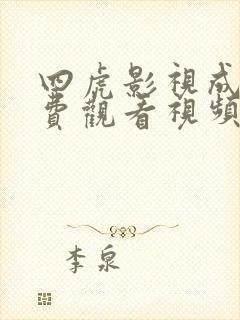 四虎影視成
費觀看視頻
李泉